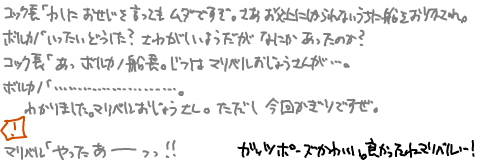 コック長「わしに おせじを言っても ムダですぞ。さあ お父上にしかられないうちに船をおりなされ。
ボルカノ「いったいどうした？さわがしいようだが なにか あったのか？
コック長「あっ ボルカノ船長。じつは マリベルおじょうさんが…。
ボルカノ「……………………。
わかりました。マリベルおじょうさん。ただし 今回かぎりですぜ。
!
マリベル「やったあーーっっ!!
ガッツポーズかわいい。良かったねマリベルー！